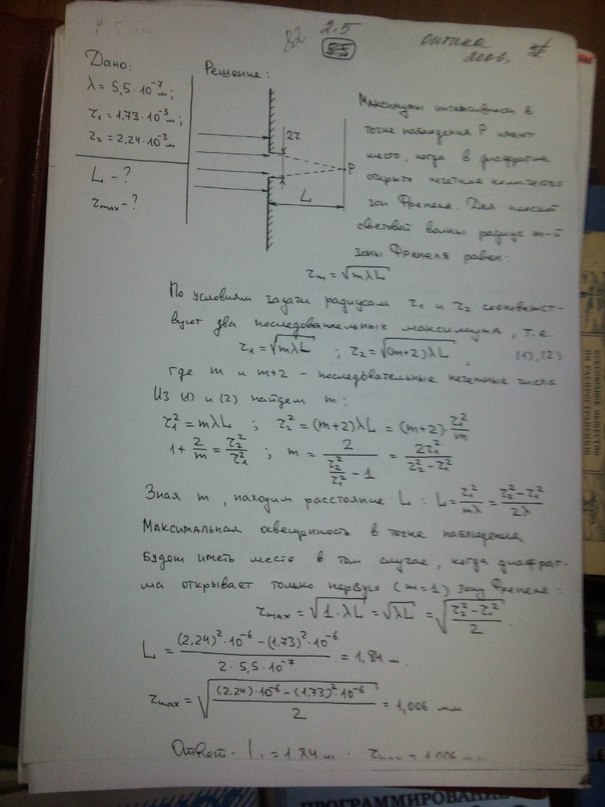 2.5
82 55 оптика
2006.
Дано:
λ = 5,5·10⁻⁷ м;
τ₁ = 1,73·10⁻³ м;
τ₂ = 2,24·10⁻³ м
L - ?
τmax - ?
Решение:
2τ
P
L
Максимумы интенсивности в
точке наблюдения P имеют
место, когда в диафрагме
открыто нечетное количество
зон Френеля. Для плоской
световой волны радиус m-й
зоны Френеля равен:
τm = √mλL
По условиям задачи радиусам τ₁ и τ₂ соответст-
вуют два последовательных максимума, т.е.
τ₁ = √mλL ; τ₂ = √(m+2)λL , (1),(2)
где m и m+2 - последовательные нечетные числа
Из (1) и (2) найдем m:
τ₁² = mλL ; τ₂² = (m+2)λL = (m+2)·τ₁²/m
1 + 2/m = τ₂²/τ₁² ; m = 2/(τ₂²/τ₁² - 1) = 2τ₁²/(τ₂² - τ₁²)
Зная m, находим расстояние L : L = τ₁²/mλ = (τ₂² - τ₁²)/2λ
Максимальная освещенность в точке наблюдения
будет иметь место в том случае, когда диафраг-
ма открывает только первую (m=1) зону Френеля:
τmax = √1·λL = √λL = √(τ₂² - τ₁²)/2
L = ((2,24)²·10⁻⁶ - (1,73)²·10⁻⁶)/(2·5,5·10⁻⁷) = 1,84 м.
τmax = √((2,24)·10⁻⁶ - (1,73)²·10⁻⁶)/2 = 1,006 мм
Ответ. L = 1,84 м. τmax = 1,006 мм.
ВСЕСОЮЗНОЕ ОБЩЕСТВО
ПО РАСПРОСТРАНЕНИЮ
ПРОГРАММИРОВАНИ